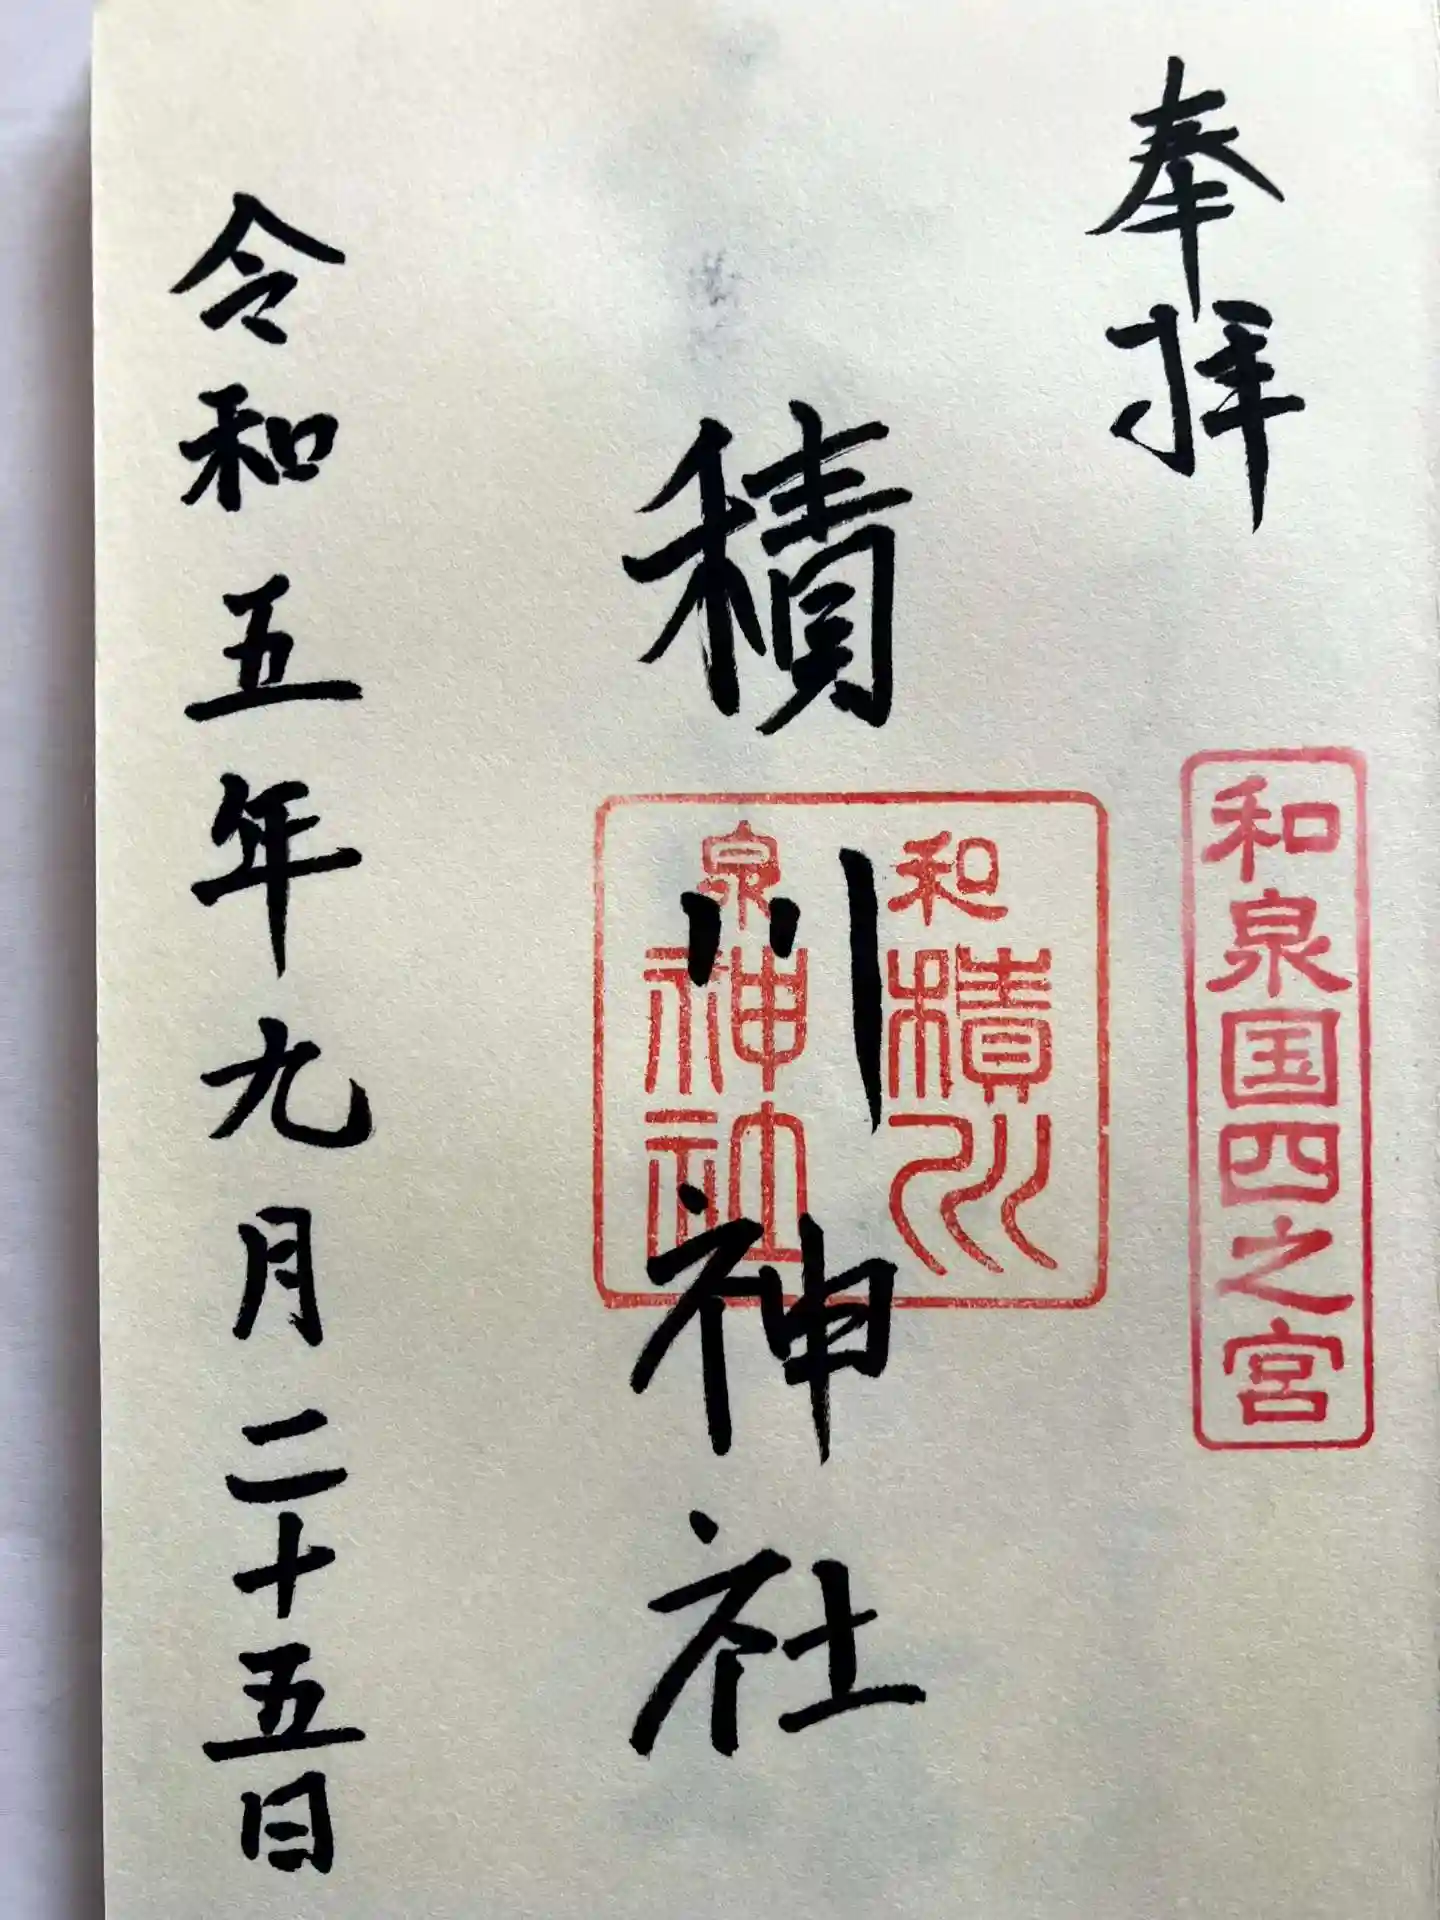 奉拝
和泉国四之宮
積川神社
和積川
泉神社
令和五年九月二十五日